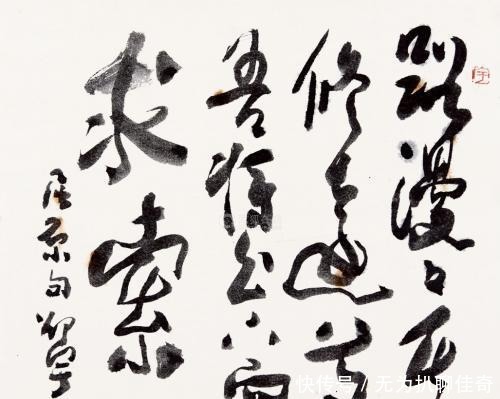 路漫々其
修遠兮
吾將上下而
求索
屈原句
快传号 / 无为扒聊佳奇